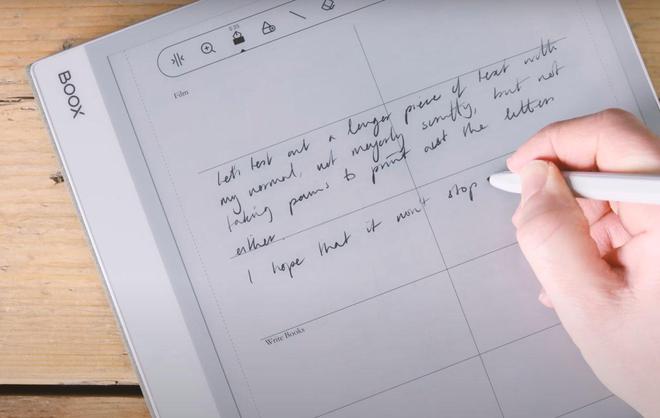 BOOX
Film
Let's test out a longer piece of text with
my normal, not majorly scruffy, but not
taking pains to print out the letters
either.
I hope that it won't stop
Write Books